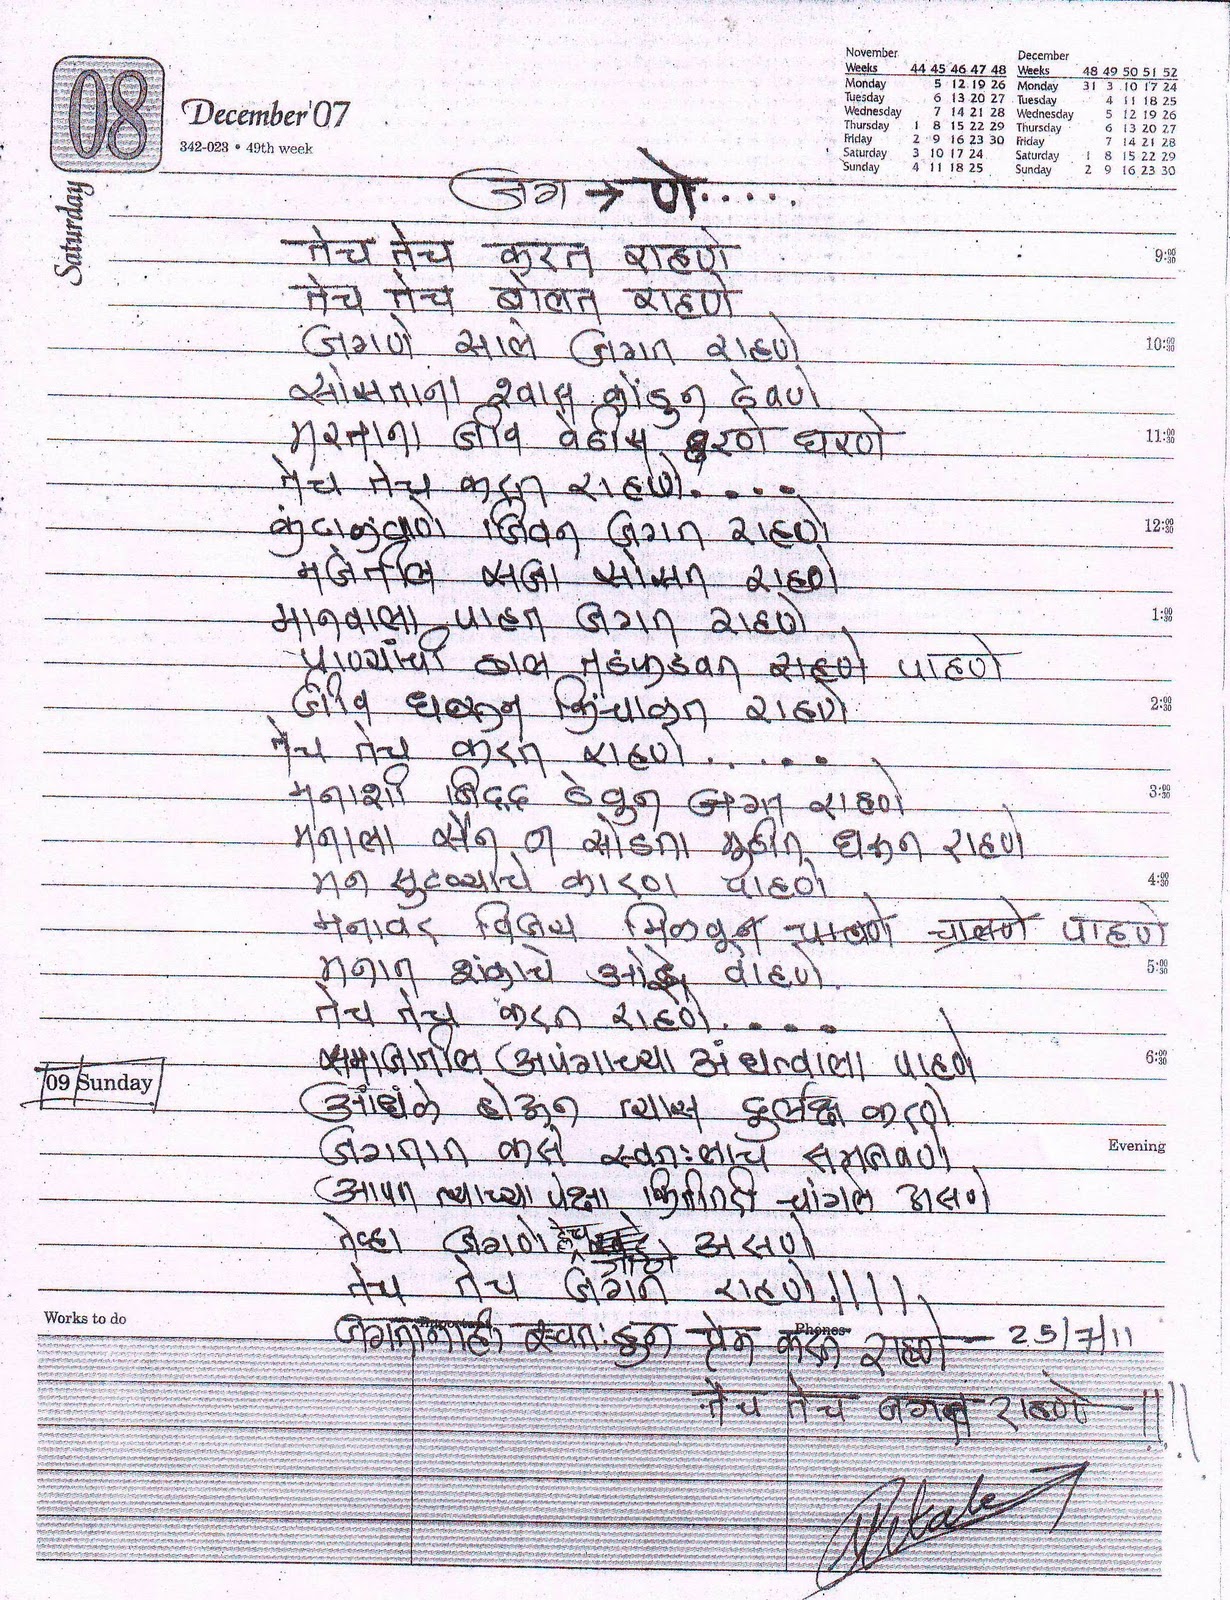 November
Weeks 44 45 46 47 48
Monday 5 12 19 26
Tuesday 6 13 20 27
Wednesday 7 14 21 28
Thursday 1 8 15 22 29
Friday 2 9 16 23 30
Saturday 3 10 17 24
Sunday 4 11 18 25
December
Weeks 48 49 50 51 52
Monday 31 3 10 17 24
Tuesday 4 11 18 25
Wednesday 5 12 19 26
Thursday 6 13 20 27
Friday 7 14 21 28
Saturday 1 8 15 22 29
Sunday 2 9 16 23 30
08
December'07
342-023 • 49th week
Saturday
जग → णे.....
तेच तेच करत राहणे
9:00 30
तेच तेच बोलत राहणे
जगणे साले जगत राहणे
10:00 30
सोसताना श्वास कोंडुन ठेवणे
मरताना जीव वेठीस धरणे
11:00 30
तेच तेच करत राहणे....
जिवन जगत राहणे
12:00 30
मजेतील सजा सोसत राहणे
मानवाला पाहत जगत राहणे
1:00 30
हाल तडफडवत राहणे पाहणे
जीव किंचाळत राहणे
2:00 30
तेच तेच करत राहणे.....
मनाशी जिद्द ठेवुन जगत राहणे
3:00 30
मनाला सैन न सोडता मुठीत धरून राहणे
मन तुटण्याचे कारण पाहणे
4:00 30
मनावर विजय मिळवून चालणे पाहणे
मनात शंकाचे ओझे वाहणे
5:00 30
तेच तेच करत राहणे....
समाजातील अपंगाच्या अंधत्वाला पाहणे
6:00 30
09 Sunday
आंधळे होऊन त्यास दुर्लक्ष करणे
जगतात कसे स्वतःलाच समजवणे
Evening
आपन त्याच्या पेक्षा कितीतरी चांगले असणे
तेव्हा जगणे हेच असणे
तेच तेच जगत राहणे!!!!
Works to do
Phones
जगतानाही स्वतःहुन प्रेम करत राहणे — 25/7/11
तेच तेच जगत राहणे - !!!